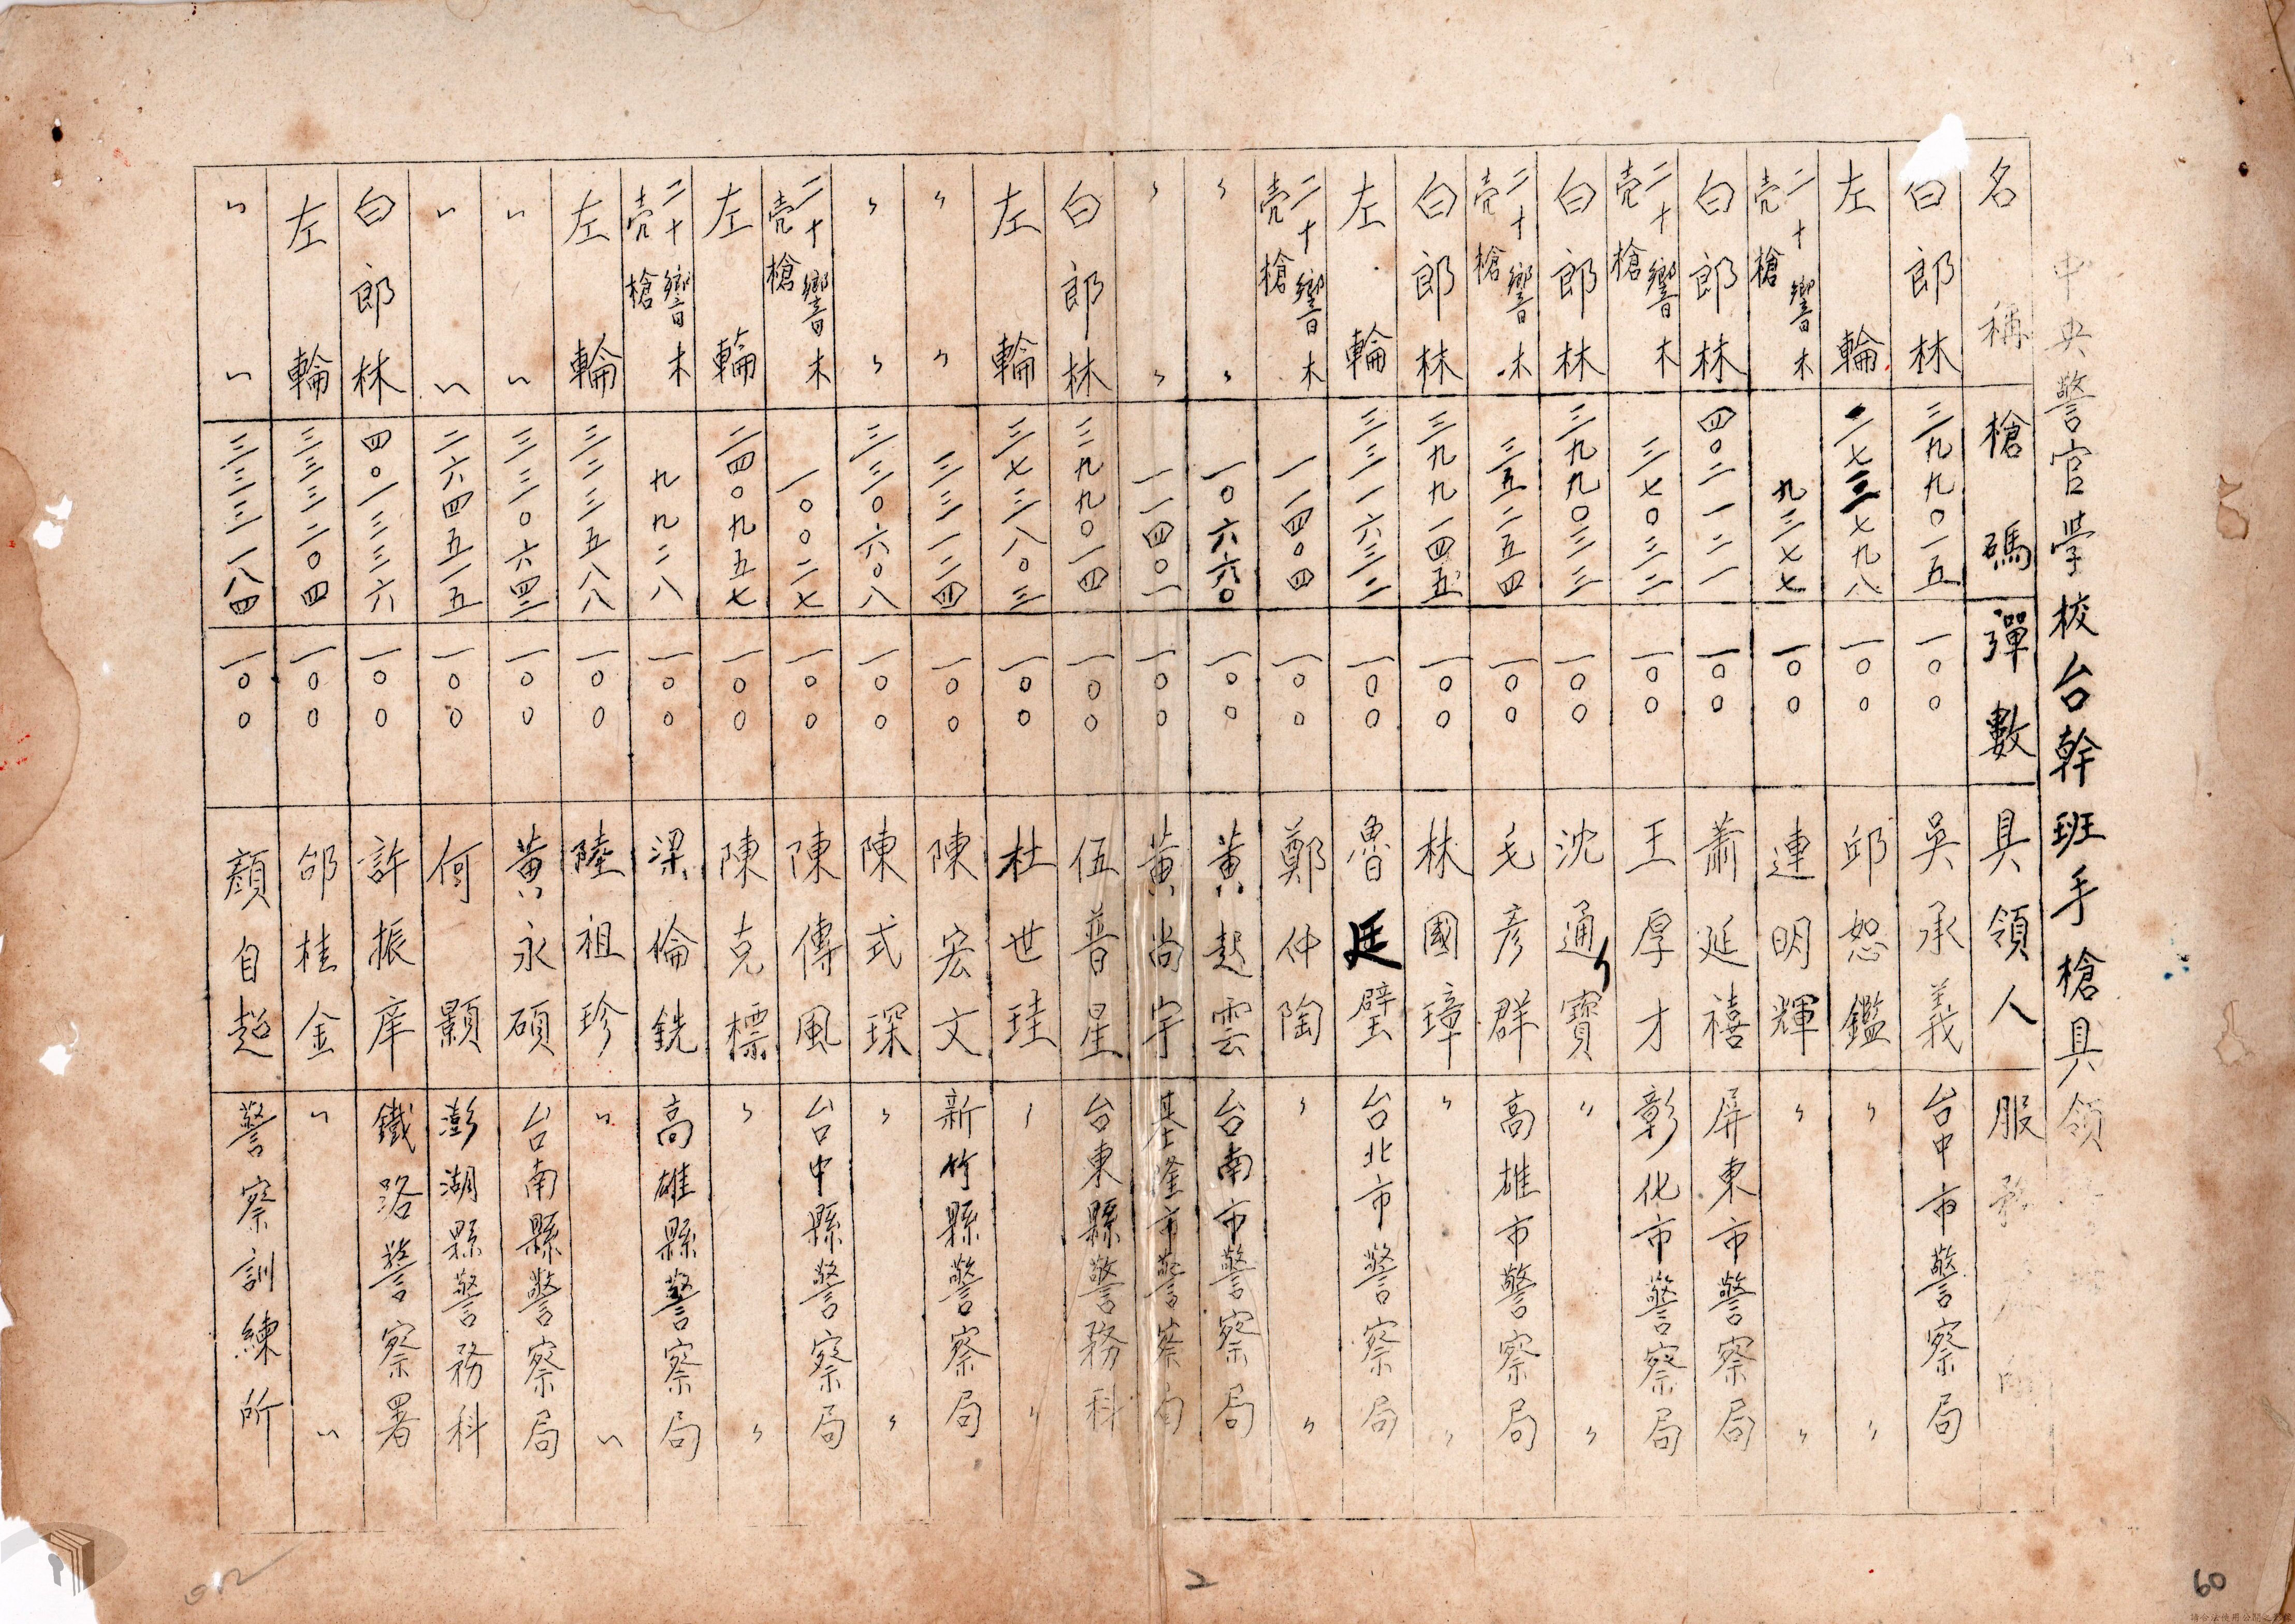 中央警官學校台幹班手槍具領
名稱 槍碼 彈數 具領人 服務
白郎林 三九九〇一五 一〇〇 吳承義 台中市警察局
左輪 二七三七九八 一〇〇 邱恕鑑 〃 〃
二十響木壳槍 九三七七 一〇〇 連明輝 〃 〃
白郎林 四〇二一二一 一〇〇 蕭延禧 屏東市警察局
二十響木壳槍 三七〇三二 一〇〇 王厚才 彰化市警察局
白郎林 三九九〇三三 一〇〇 沈通寶 〃 〃
二十響木壳槍 三五二五四 一〇〇 毛彥群 高雄市警察局
白郎林 三九九一四五 一〇〇 林國璋 〃 〃
左輪 三三一六三二 一〇〇 魯廷璧 台北市警察局
二十響木壳槍 一一四〇四 一〇〇 鄭仲陶 〃 〃
〃 〃 一〇六六〇 一〇〇 黃起雲 台南市警察局
〃 〃 一一四〇一 一〇〇 黃尚宇 基隆市警察局
白郎林 三九九〇一四 一〇〇 伍普星 台東縣警務科
左輪 三七三八〇三 一〇〇 杜世珪 〃 〃
〃 〃 三三一二四 一〇〇 陳宏文 新竹縣警察局
〃 〃 三三〇六〇八 一〇〇 陳式琛 〃 〃
二十響木壳槍 一〇〇二七 一〇〇 陳傳風 台中縣警察局
左輪 二四〇九五七 一〇〇 陳克標 〃 〃
二十響木壳槍 九九二八 一〇〇 梁倫銑 高雄縣警察局
左輪 三二三五八八 一〇〇 陸祖珍 〃 〃
〃 〃 三三〇六四二 一〇〇 黃永碩 台南縣警察局
〃 〃 二六四五一五 一〇〇 何顥 澎湖縣警務科
白郎林 四〇一三三六 一〇〇 許振庠 鐵路警察署
左輪 三三三二〇四 一〇〇 邰桂金 〃 〃
〃 〃 三三三一八四 一〇〇 顏自超 警察訓練所
2
60